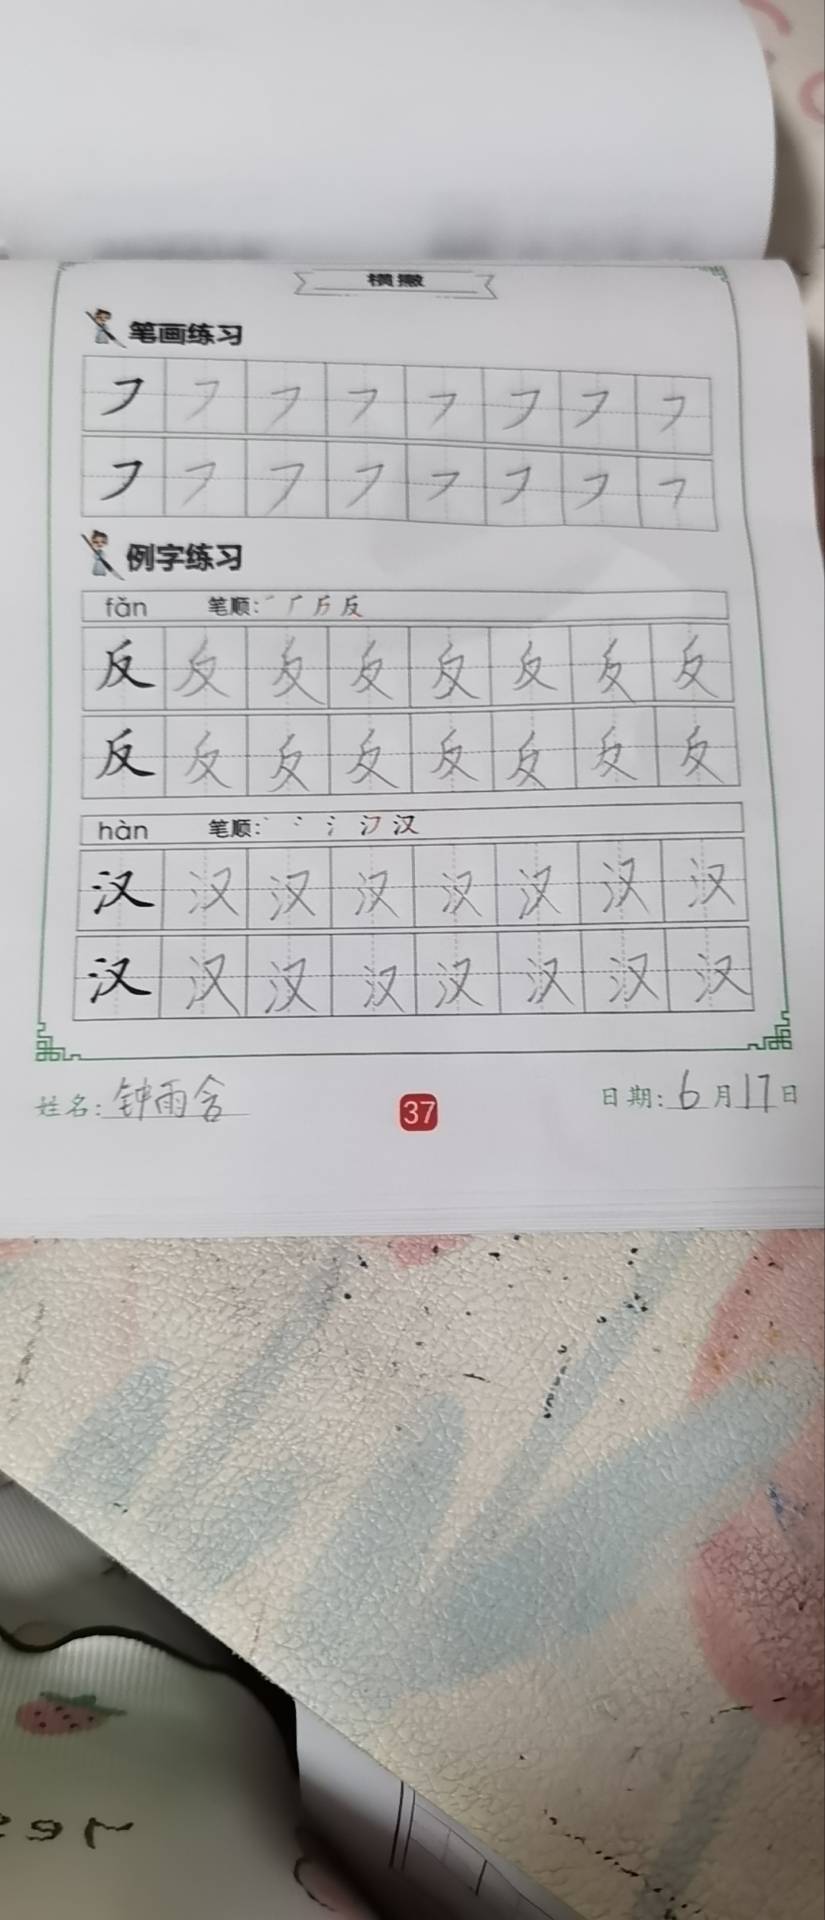 横撇
笔画练习
㇇ ㇇ ㇇ ㇇ ㇇ ㇇ ㇇ ㇇
㇇ ㇇ ㇇ ㇇ ㇇ ㇇ ㇇ ㇇
例字练习
fǎn 笔顺: 反
反 反 反 反 反 反 反 反
反 反 反 反 反 反 反 反
hàn 笔顺: 汉
汉 汉 汉 汉 汉 汉 汉 汉
汉 汉 汉 汉 汉 汉 汉 汉
姓名: 钟雨含 37 日期: 6月17日